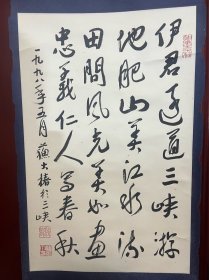 伊君远道三峡游
地肥山美江水流
田間風光美如画
忠義仁人写春秋
一九九八年五月蘇大椿於三峡